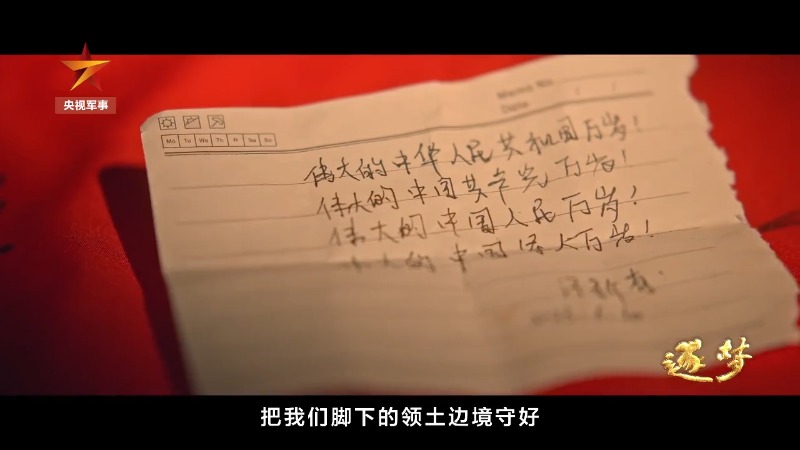 央视军事
Memo No.
Date / /
Mo Tu We Th Fr Sa Su
伟大的中华人民共和国万岁！
伟大的中国共产党万岁！
伟大的中国人民万岁！
大的中国军人万岁！
逐梦
把我们脚下的领土边境守好